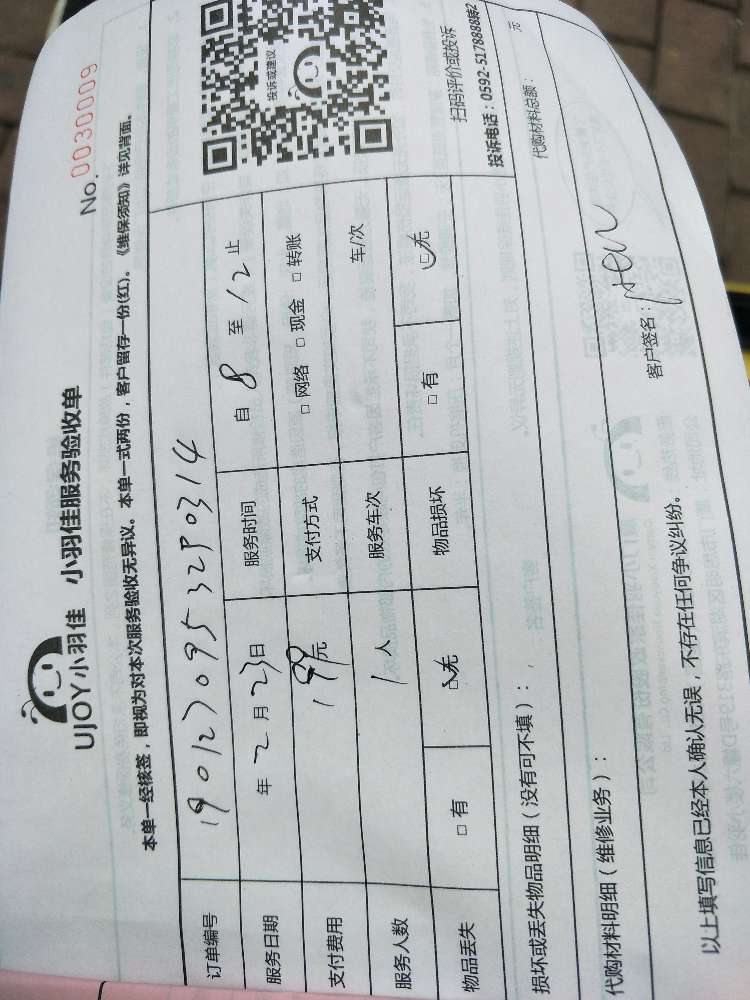 UJOY小羽佳 小羽佳服务验收单
No. 0030009
本单一经核签，即视为对本次服务验收无异议。本单一式两份，客户留存一份(红)。《维保须知》详见背面。
订单编号 1901270953290314
服务日期 年 2 月 23 日 服务时间 自 8 至 12 止
支付费用 199 元 支付方式 □ 网络 □ 现金 □ 转账
服务人数 1 人 服务车次 车/次
物品丢失 □ 有 □ 无 物品损坏 □ 有 □ 无
投诉或建议
扫码评价或投诉
投诉电话：0592-5178888转2
损坏或丢失物品明细（没有可不填）：
代购材料明细（维修业务）： 代购材料总额： 元
客户签名：
以上填写信息已经本人确认无误，不存在任何争议纠纷。